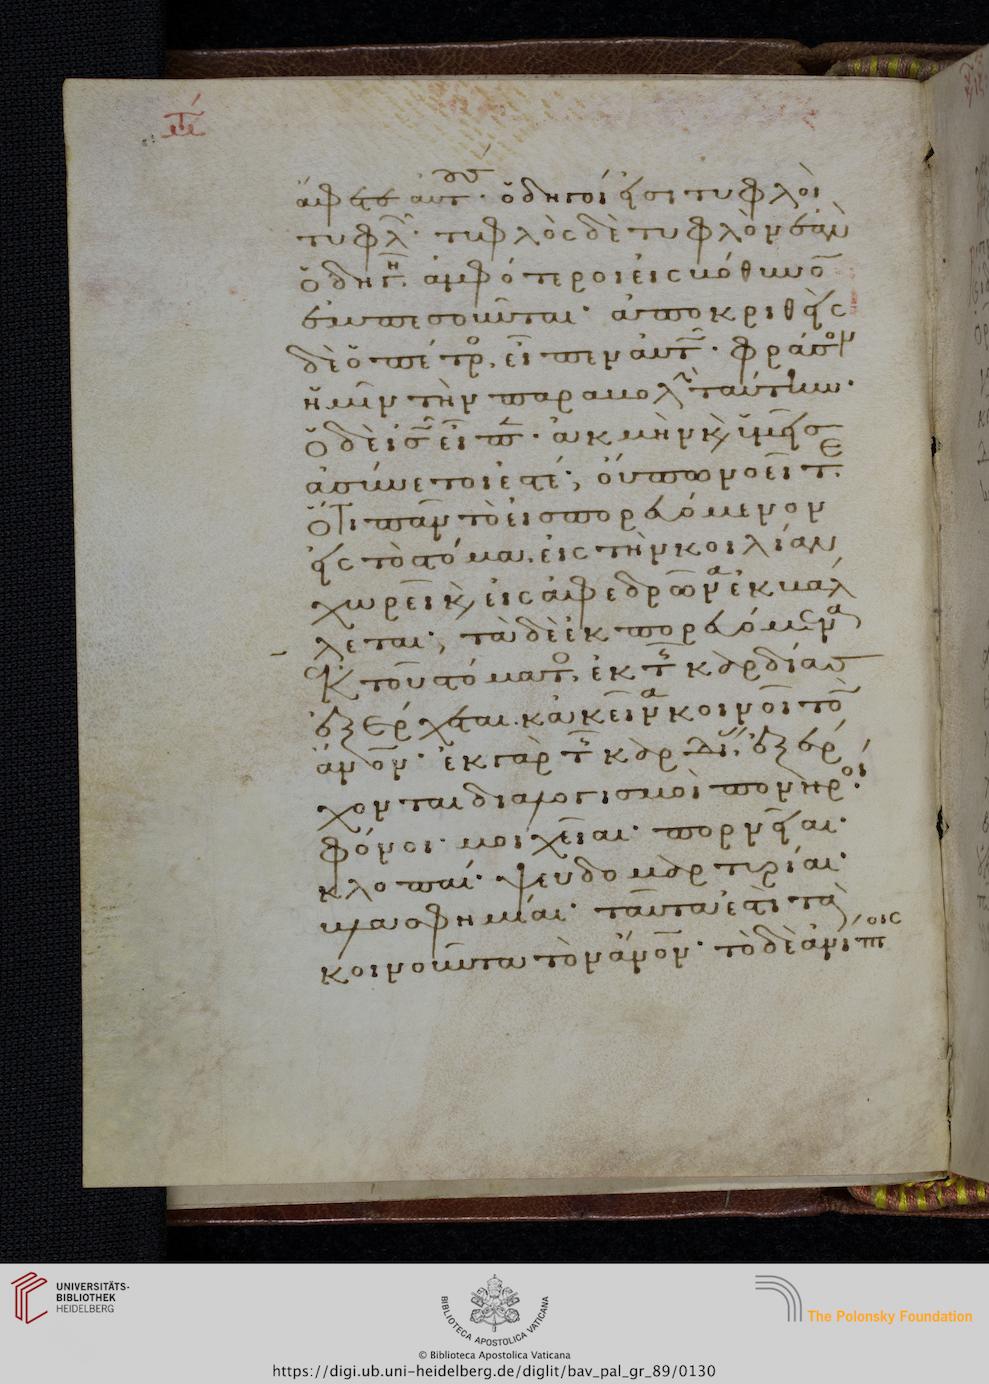 ἄφετε αὐτούς· ὁδηγοί εἰσι τυφλοὶ
τυφλῶν· τυφλὸς δὲ τυφλὸν ἐὰν
ὁδηγῆ. ἀμφότεροι εἰς βόθυνον
ἐμπεσοῦνται· ἀποκριθεὶς
δὲ ὁ πέτρος, εἶπεν αὐτῶ· φράσον
ἡμῖν τὴν παραβολὴν ταύτην·
ὁ δὲ ἰς εἶπεν· ἀκμὴν κὶ ὑμεῖς
ἀσύνετοι ἐστέ; οὔπω νοεῖτε.
ὅτι πᾶν τὸ εἰσπορευόμενον
εἰς τὸ στόμα, εἰς τὴν κοιλίαν
χωρεῖ κὶ εἰς ἀφεδρῶνα ἐκβάλ
λεται; τὰ δὲ ἐκπορευόμενα
ἐκ τοῦ στόματος, ἐκ τῆς καρδίας
ἐξέρχεται. κἀκεῖνα κοινοῖ τὸν
ἄνον· ἐκ γὰρ τῆς καρδίας, ἐξέρ
χονται διαλογισμοὶ πονηροί·
φόνοι· μοιχεῖαι· πορνεῖαι·
κλοπαί· ψευδομαρτυρίαι·
βλασφημίαι· ταῦτα ἐστι τὰ
κοινοῦντα τὸν ἄνον· τὸ δὲ ἀνίπτοις
UNIVERSITÄTS-
BIBLIOTHEK
HEIDELBERG
BIBLIOTECA APOSTOLICA VATICANA
The Polonsky Foundation
© Biblioteca Apostolica Vaticana
https://digi.ub.uni-heidelberg.de/diglit/bav_pal_gr_89/0130